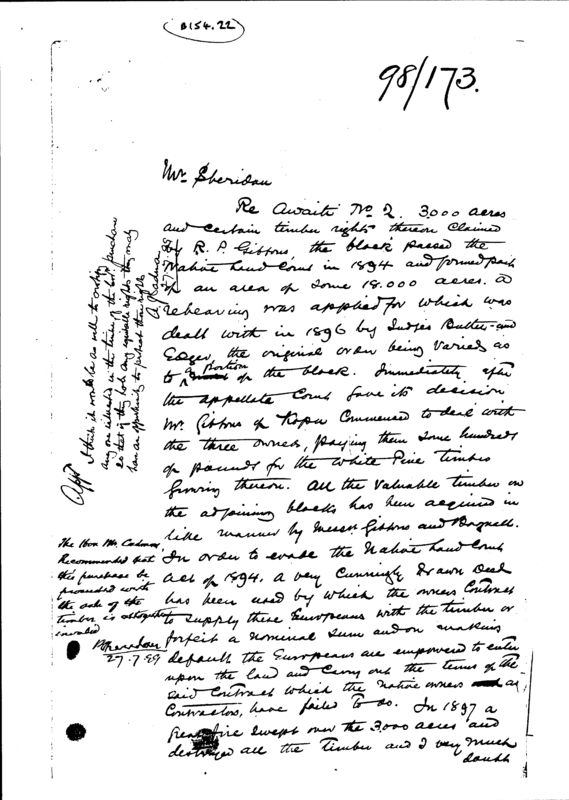 B154.22
98/173.
Mr Sheridan
Re Awaiti No 2. 3,000 acres
and certain timber rights thereon claimed
by R. P. Gibbons, the block passed the
Native Land Court in 1894 and formed part
of an area of some 18.000 acres. A
rehearing was applied for which was
dealt with in 1896 by Judges Butler and
Edger, the original order being varied as
to a portion of the block. Immediately after
the appellate Court gave its decision
Mr. Gibbons of Kopu commenced to deal with
the three owners, paying them some hundreds
of pounds for the White Pine timber
growing thereon. All the valuable timber on
the adjoining blocks has been acquired in
like manner by Messrs Gibbons and Bagnall.
In order to evade the Native Land Court
Act of 1894. a very cunningly drawn Deed
has been used by which the owners contract
to supply these Europeans with the timber or
forfeit a nominal sum and on making
default the Europeans are empowered to enter
upon the land and carry out the terms of the
said contract which the Native owners as
Contractors, have failed to do. In 1897 a
great fire swept over the 3,000 acres and
destroyed all the timber and I very much
doubt
I think it would be as well to
any one interested in the timber of the
so that if they hold any equitable rights they may
have an opportunity to their rights
27-7-99
The Hon Mr. Cadman
Recommended that
this purchase be
proceeded with
the sale of the
timber is altogether
invalid
P Sheridan
27.7.99